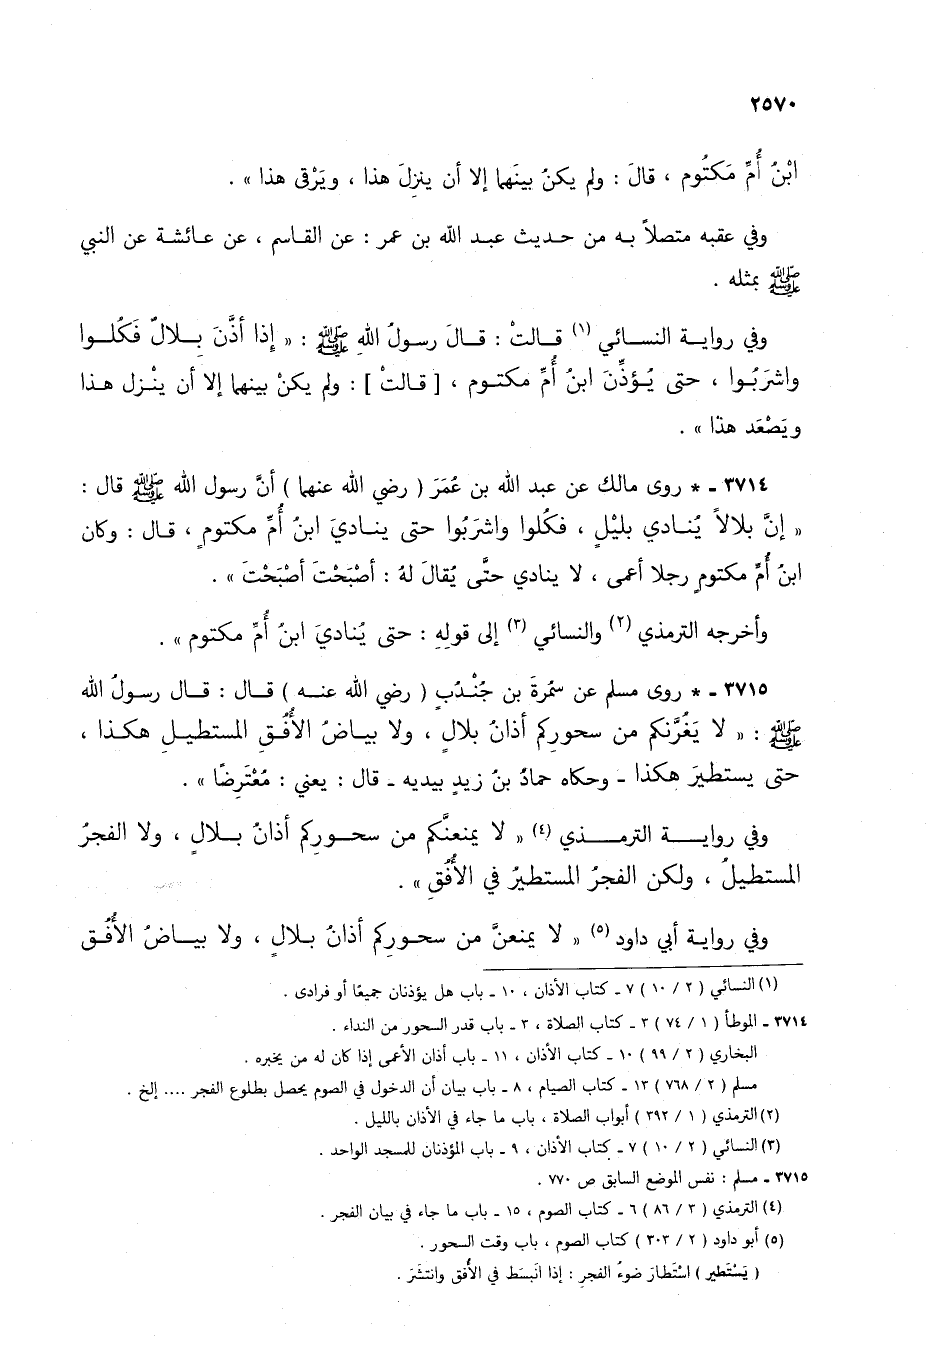 ٢٥٧٠
ابْنُ أُمِّ مَكتُوم ، قالَ : ولم يكنْ بينَهما إلا أن ينزِلَ هذا ، ويَرْقى هذا » .
وفي عقبه متصلاً به من حديث عبد الله بن عمر : عن القاسم ، عن عائشة عن النبي
ﷺ بمثله .
وفي رواية النسائي (١) قالتْ : قالَ رسولُ اللهِ ﷺ : « إِذا أَذَّنَ بلالٌ فَكُلوا
واشرَبُوا ، حتى يُؤذِّنَ ابنُ أُمِّ مكتوم ، [ قالتْ ] : ولم يكنْ بينهما إلا أن ينْزل هذا
ويَصْعَد هذا » .
٣٧١٤ ـ * روى مالك عن عبد الله بن عُمَرَ ( رضي الله عنهما ) أنَّ رسول الله ﷺ قال :
« إنَّ بلالاً يُنادي بليْلٍ ، فكُلوا واشرَبُوا حتى يناديَ ابنُ أُمِّ مكتومٍ ، قال : وكان
ابنُ أُمِّ مكتومٍ رجلا أعمى ، لا ينادي حتَّى يُقالَ لهُ : أصْبَحْتَ أصْبَحْتَ » .
وأخرجه الترمذي (٢) والنسائي (٣) إلى قولِهِ : حتى يُناديَ ابنُ أُمِّ مكتوم » .
٣٧١٥ ـ * روى مسلم عن سمُرةَ بن جُنْدُبٍ ( رضي الله عنه ) قال : قال رسولُ الله
ﷺ : « لا يَغُرَّنكم من سحورِكم أذانُ بلالٍ ، ولا بياضُ الأُفُقِ المستطيل هكذا ،
حتى يستطيرَ هكذا ـ وحكاه حمادُ بنُ زيدٍ بيديه ـ قال : يعني : مُعْتَرِضًا » .
وفي رواية الترمذي (٤) « لا يمنعنَّكم من سحورِكم أذانُ بلالٍ ، ولا الفجرُ
المستطيلُ ، ولكن الفجرُ المستطيرُ في الأُفُقِ » .
وفي رواية أبي داود (٥) « لا يمنعنَّ من سحورِكم أذانُ بلالٍ ، ولا بياضُ الأُفُق
(١) النسائي ( ٢ / ١٠ ) ٧ ـ كتاب الأذان ، ١٠ ـ باب هل يؤذنان جميعًا أو فرادى .
٣٧١٤ ـ الموطأ ( ١ / ٧٤ ) ٣ ـ كتاب الصلاة ، ٣ ـ باب قدر السحور من النداء .
البخاري ( ٢ / ٩٩ ) ١٠ ـ كتاب الأذان ، ١١ ـ باب أذان الأعمى إذا كان له من يخبره .
مسلم ( ٢ / ٧٦٨ ) ١٣ ـ كتاب الصيام ، ٨ ـ باب بيان أن الدخول في الصوم يحصل بطلوع الفجر .... إلخ .
(٢) الترمذي ( ١ / ٣٩٢ ) أبواب الصلاة ، باب ما جاء في الأذان بالليل .
(٣) النسائي ( ٢ / ١٠ ) ٧ ـ كتاب الأذان ، ٩ ـ باب المؤذنان للمسجد الواحد .
٣٧١٥ ـ مسلم : نفس الموضع السابق ص ٧٧٠ .
(٤) الترمذي ( ٣ / ٨٦ ) ٦ ـ كتاب الصوم ، ١٥ ـ باب ما جاء في بيان الفجر .
(٥) أبو داود ( ٢ / ٣٠٣ ) كتاب الصوم ، باب وقت السحور .
( يَسْتَطير ) اسْتَطارَ ضوءُ الفجر : إذا انبَسَط في الأُفق وانتشَرَ .